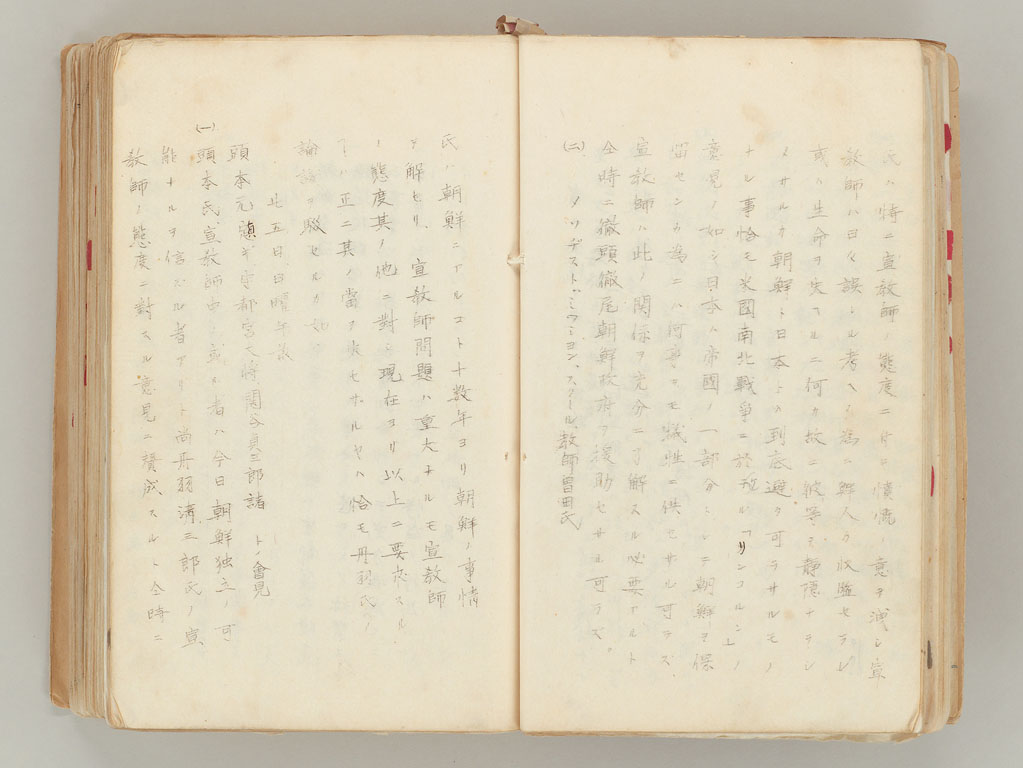 氏ハ特ニ宣教師ノ態度ニ付キ憤慨ノ意ヲ洩シ宣
教師ハ日ク誤レル考ヘノ為ニ鮮人カ収監セラレ
或ハ生命ヲ失ヘルニ何カ故ニ彼等ヲ静穏ナラシ
メサルカ朝鮮ト日本トハ到底避ク可ラサルモノ
ナル事恰モ米國南北戦争ニ於ル「リンコルン」ノ
意見ノ如シ日本ハ帝國ノ一部分トシテ朝鮮ヲ保
留センカ為ニハ何事ヲモ犠牲ニ供セサル可ラズ
宣教師ハ此ノ関係ヲ充分ニ了解スル必要アルト
仝時ニ徹頭徹尾朝鮮政府ヲ援助セサル可ラズ。
(二)メソヂスト、ミッション、スクール教師曽田氏
氏ハ朝鮮ニアルコト十数年ヨリ朝鮮ノ事情
ヲ解セリ、宣教師問題ハ重大ナルモ宣教師
ノ態度其ノ他ニ対シ現在ヨリ以上ニ要求スル
ハ正ニ其ノ当ヲ失セサルヤハ恰モ丹羽氏ノ
論議ヲ駁セルカ如シ
廿五日日曜午後
(一)頭本元貞、宇都宮大将関谷貞三郎諸 トノ會見
頭本氏、宣教師中ニ或ル者ハ今日朝鮮独立ノ可
能ナルヲ信スル者アリト尚丹羽清三郎氏ノ宣
教師ノ態度ニ對スル意見ニ賛成スルト仝時ニ